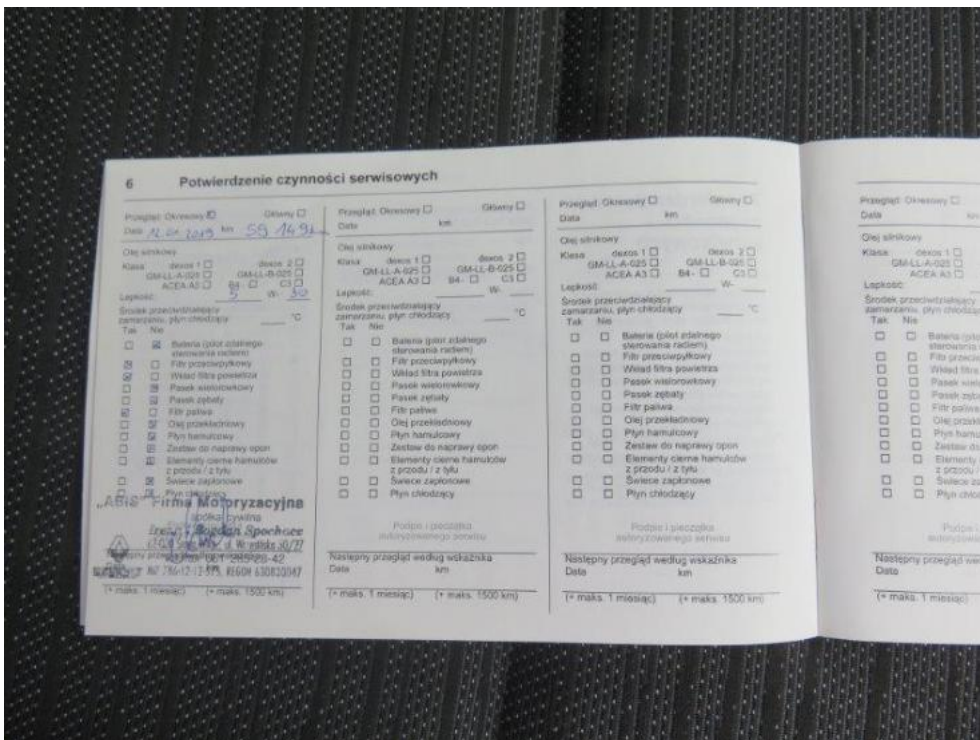 6 Potwierdzenie czynności serwisowych
Przegląd: Okresowy Główny
Data 12.01 2019 km 59 149
Olej silnikowy
Klasa: dexos 1 dexos 2
GM-LL-A-025 GM-LL-B-025
ACEA A3 B4 - C3
Lepkość: 5 W- 30
Środek przeciwdziałający
zamarzaniu, płyn chłodzący °C
Tak Nie
Bateria (pilot zdalnego
sterowania radiem)
Filtr przeciwpyłkowy
Wkład filtra powietrza
Pasek wielorowkowy
Pasek zębaty
Filtr paliwa
Olej przekładniowy
Płyn hamulcowy
Zestaw do naprawy opon
Elementy cierne hamulców
z przodu / z tyłu
Świece zapłonowe
Płyn chłodzący
„ABIS" Firma Motoryzacyjna
spółka cywilna
Bogdan Spochacz
(+ maks. 1 miesiąc) (+ maks. 1500 km)
Przegląd: Okresowy Główny
Data km
Olej silnikowy
Klasa: dexos 1 dexos 2
GM-LL-A-025 GM-LL-B-025
ACEA A3 B4 - C3
Lepkość: W-
Środek przeciwdziałający
zamarzaniu, płyn chłodzący °C
Tak Nie
Bateria (pilot zdalnego
sterowania radiem)
Filtr przeciwpyłkowy
Wkład filtra powietrza
Pasek wielorowkowy
Pasek zębaty
Filtr paliwa
Olej przekładniowy
Płyn hamulcowy
Zestaw do naprawy opon
Elementy cierne hamulców
z przodu / z tyłu
Świece zapłonowe
Płyn chłodzący
Podpis i pieczątka
autoryzowanego serwisu
Następny przegląd według wskaźnika
Data km
(+ maks. 1 miesiąc) (+ maks. 1500 km)
Przegląd: Okresowy Główny
Data km
Olej silnikowy
Klasa: dexos 1 dexos 2
GM-LL-A-025 GM-LL-B-025
ACEA A3 B4 - C3
Lepkość: W-
Środek przeciwdziałający
zamarzaniu, płyn chłodzący °C
Tak Nie
Bateria (pilot zdalnego
sterowania radiem)
Filtr przeciwpyłkowy
Wkład filtra powietrza
Pasek wielorowkowy
Pasek zębaty
Filtr paliwa
Olej przekładniowy
Płyn hamulcowy
Zestaw do naprawy opon
Elementy cierne hamulców
z przodu / z tyłu
Świece zapłonowe
Płyn chłodzący
Podpis i pieczątka
autoryzowanego serwisu
Następny przegląd według wskaźnika
Data km
(+ maks. 1 miesiąc) (+ maks. 1500 km)
Przegląd: Okresowy
Data km
Olej silnikowy
Klasa: dexos 1
GM-LL-A-025
ACEA A3
Lepkość:
Środek przeciwdziałający
zamarzaniu, płyn
Tak Nie
Bateria
sterowania
Filtr
Wkład filtra
Pasek
Pasek
Filtr
Olej
Płyn
Zestaw do
Elementy
z przodu / z
Świece
Płyn
Następny przegląd
Data km
(+ maks. 1 miesiąc)